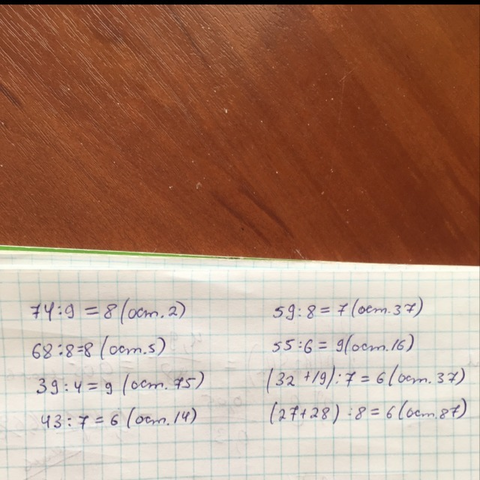 74:9 = 8 (ост. 2)
68:8=8 (ост. 5)
39:4 = 9 (ост. 75)
43:7 = 6 (ост. 14)
59:8 = 7 (ост. 37)
55:6 = 9 (ост. 16)
(32 + 19):7 = 6 (ост. 37)
(27+28) :8 = 6 (ост. 87)